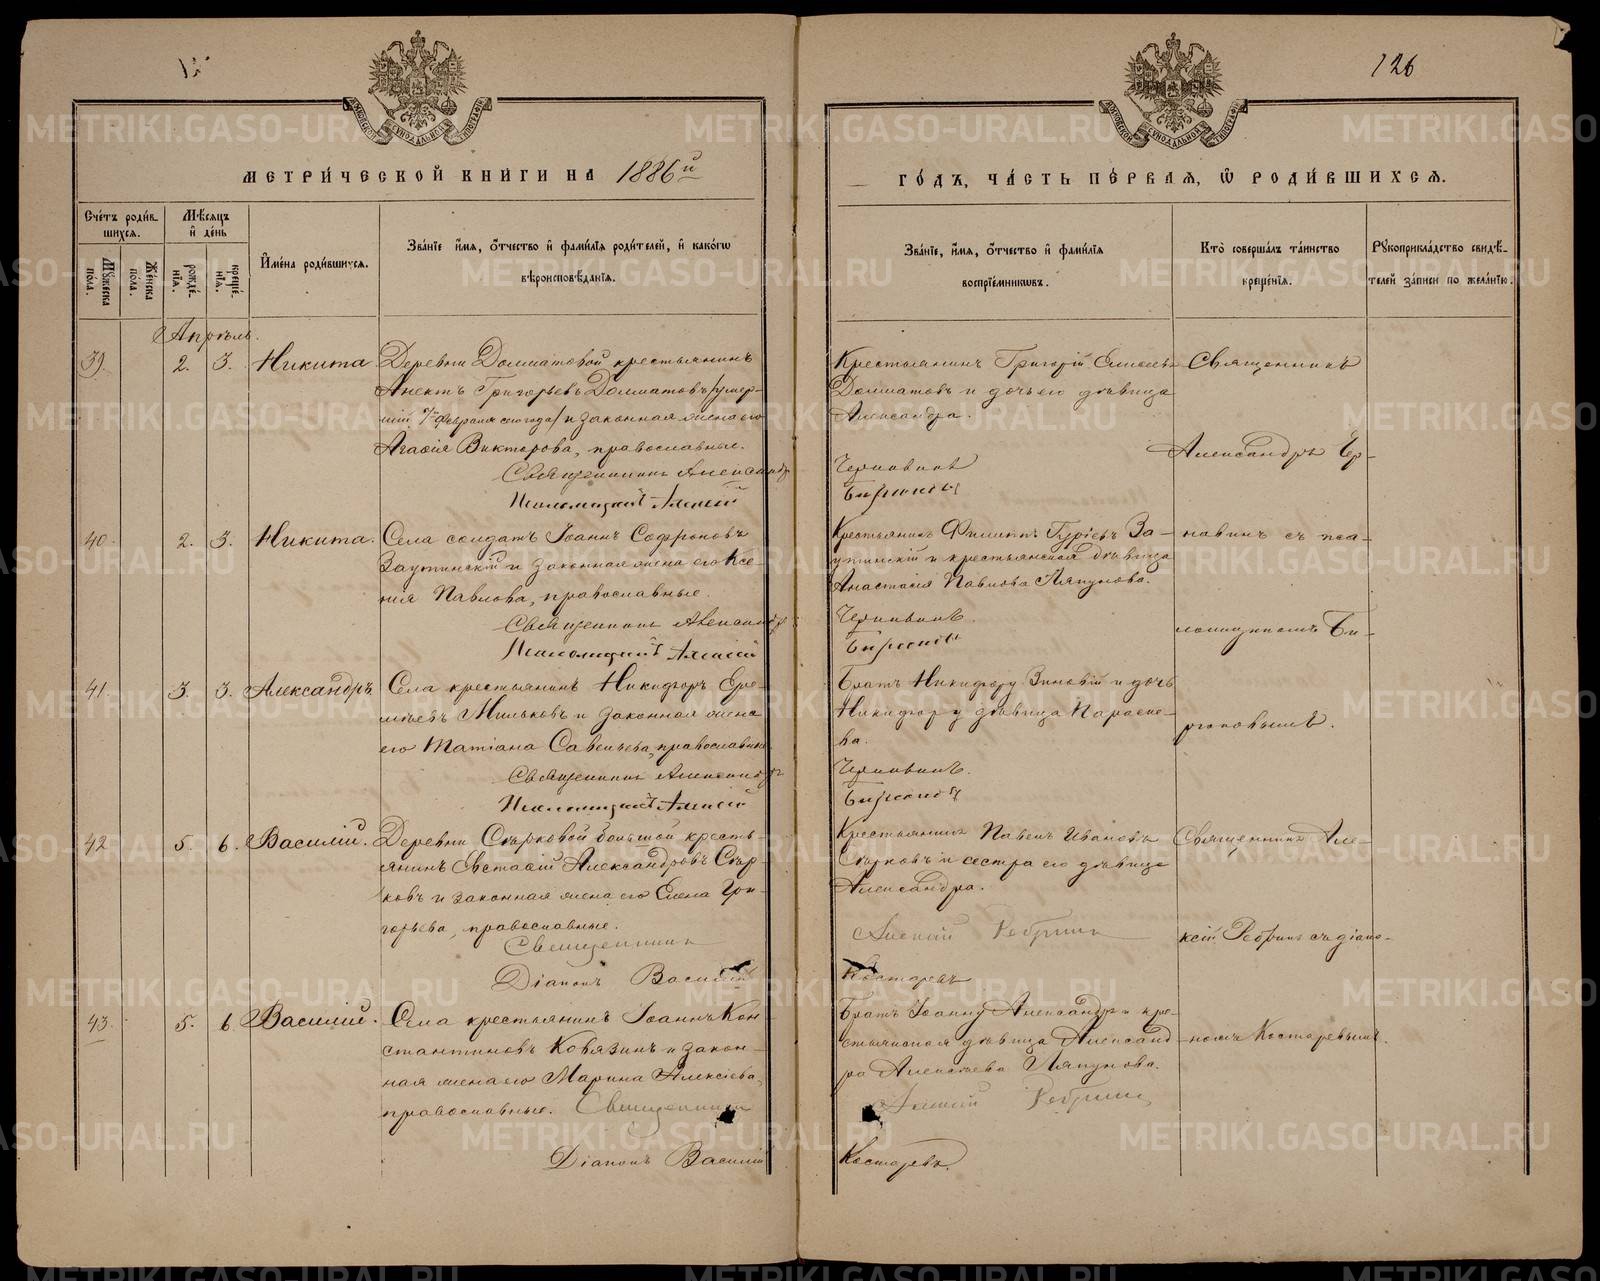 126
МЕТРИ́ЧЕСКОЙ КНИ́ГИ НА 1886й
ГО́ДЪ, ЧА́СТЬ ПЕ́РВАЯ, Ѿ РОДИ́ВШИХСЯ.
Сче́тъ роди́в-
шихся.
Мѣ́сяцъ
и҆ де́нь
Му́жеска
по́ла.
Же́нска
по́ла.
рожде́-
нїя.
креще́-
нїя.
И҆мена̀ роди́вшихся.
Зва́нїе и҆́мя, ѻ҆́тчество и҆ фами́лїя роди́телей, и҆ како́гѡ
вѣроисповѣ́данїя.
Зва́нїе, и҆́мя, ѻ҆́тчество и҆ фами́лїя
воспрїе́мникѡвъ.
Кто̀ соверша́лъ та́инство
креще́нїя.
Рукоприкла́дство свидѣ́-
телей за́писи по жела́нїю.
Апрѣль.
39. 2. 3. Никита
Деревни Долматовой крестьянинъ
Григорьевъ Долматовъ /умер-
шій февраля сего года/ и законная жена его
Агафія Викторова, православные.
Священникъ Александръ
Алексій
Крестьянинъ Григорій
Долматовъ и дочь его дѣвица
Александра.
Чернавинъ
Бирюковъ
Священникъ
Александръ Чер-
40. 2. 3. Никита.
Села солдатъ Іоаннъ Софроновъ
и законная жена его Ксе-
нія Павлова, православные.
Священникъ Александръ
Алексій
Крестьянинъ Филиппъ Гуріевъ За-
и крестьянская дѣвица
Анастасія Павлова Ляпунова.
Чернавинъ.
Бирюковъ
навинъ съ пса-
ломщикомъ Би-
рюковымъ.
41. 3. 3. Александръ
Села крестьянинъ Никифоръ Ере-
мѣевъ Мильковъ и законная жена
его Татіана Савельева, православные
Священникъ Александръ
Алексій
Братъ Никифору Зиновій и дочь
Никифору дѣвица Параске-
ва.
Чернавинъ.
Бирюковъ
42. 5. 6. Василій.
Деревни Сѣрковой большой кресть-
янинъ Евстафій Александровъ Сѣр-
ковъ и законная жена его Елена Гри-
горьева, православные.
Священникъ
Діаконъ Василій
Крестьянинъ Павелъ Ивановъ
Сѣрковъ и сестра его дѣвица
Александра.
Алексій Ребринъ
Костаревъ
Священникъ Але-
ксій Ребринъ съ діако-
номъ Костаревымъ.
43. 5. 6. Василій.
Села крестьянинъ Іоаннъ Кон-
стантиновъ Ковязинъ и закон-
ная жена его Марина Алексіева,
православные. Священникъ
Діаконъ Василій
Братъ Іоанну Александръ и кре-
стьянская дѣвица Александ-
ра Алексѣева Ляпунова.
Алексій Ребринъ
Костаревъ.
METRIKI.GASO-URAL.RU